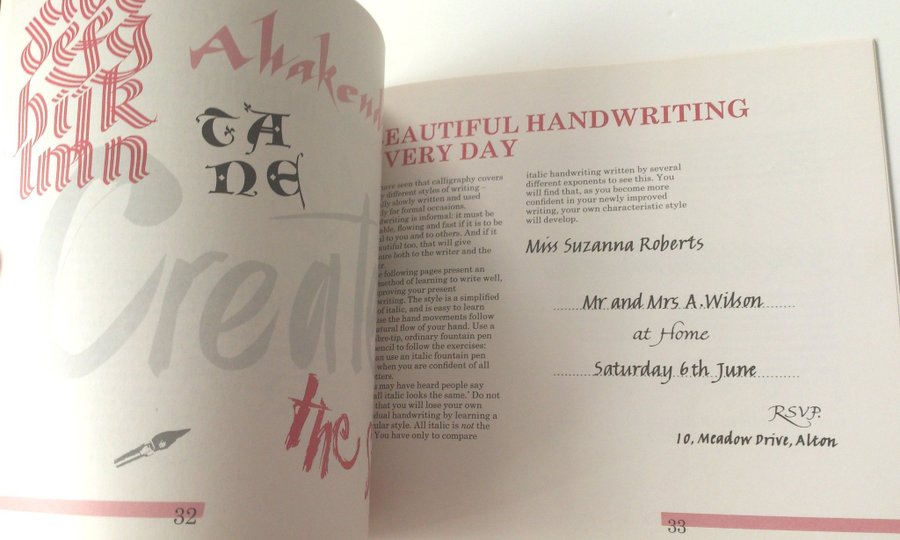 defg
hijk
lmn
Awakend
TA
NE
Creat
the
32
EAUTIFUL HANDWRITING
VERY DAY
have seen that calligraphy covers
different styles of writing –
slowly written and used
for formal occasions.
is informal: it must be
flowing and fast if it is to be
to you and to others. And if it
too, that will give
both to the writer and the
following pages present an
method of learning to write well,
your present
writing. The style is a simplified
of italic, and is easy to learn
the hand movements follow
flow of your hand. Use a
ordinary fountain pen
to follow the exercises:
can use an italic fountain pen
when you are confident of all
may have heard people say
all italic looks the same.' Do not
that you will lose your own
handwriting by learning a
style. All italic is not the
You have only to compare
italic handwriting written by several
different exponents to see this. You
will find that, as you become more
confident in your newly improved
writing, your own characteristic style
will develop.
Miss Suzanna Roberts
Mr and Mrs A. Wilson
at Home
Saturday 6th June
RSVP.
10, Meadow Drive, Alton
33